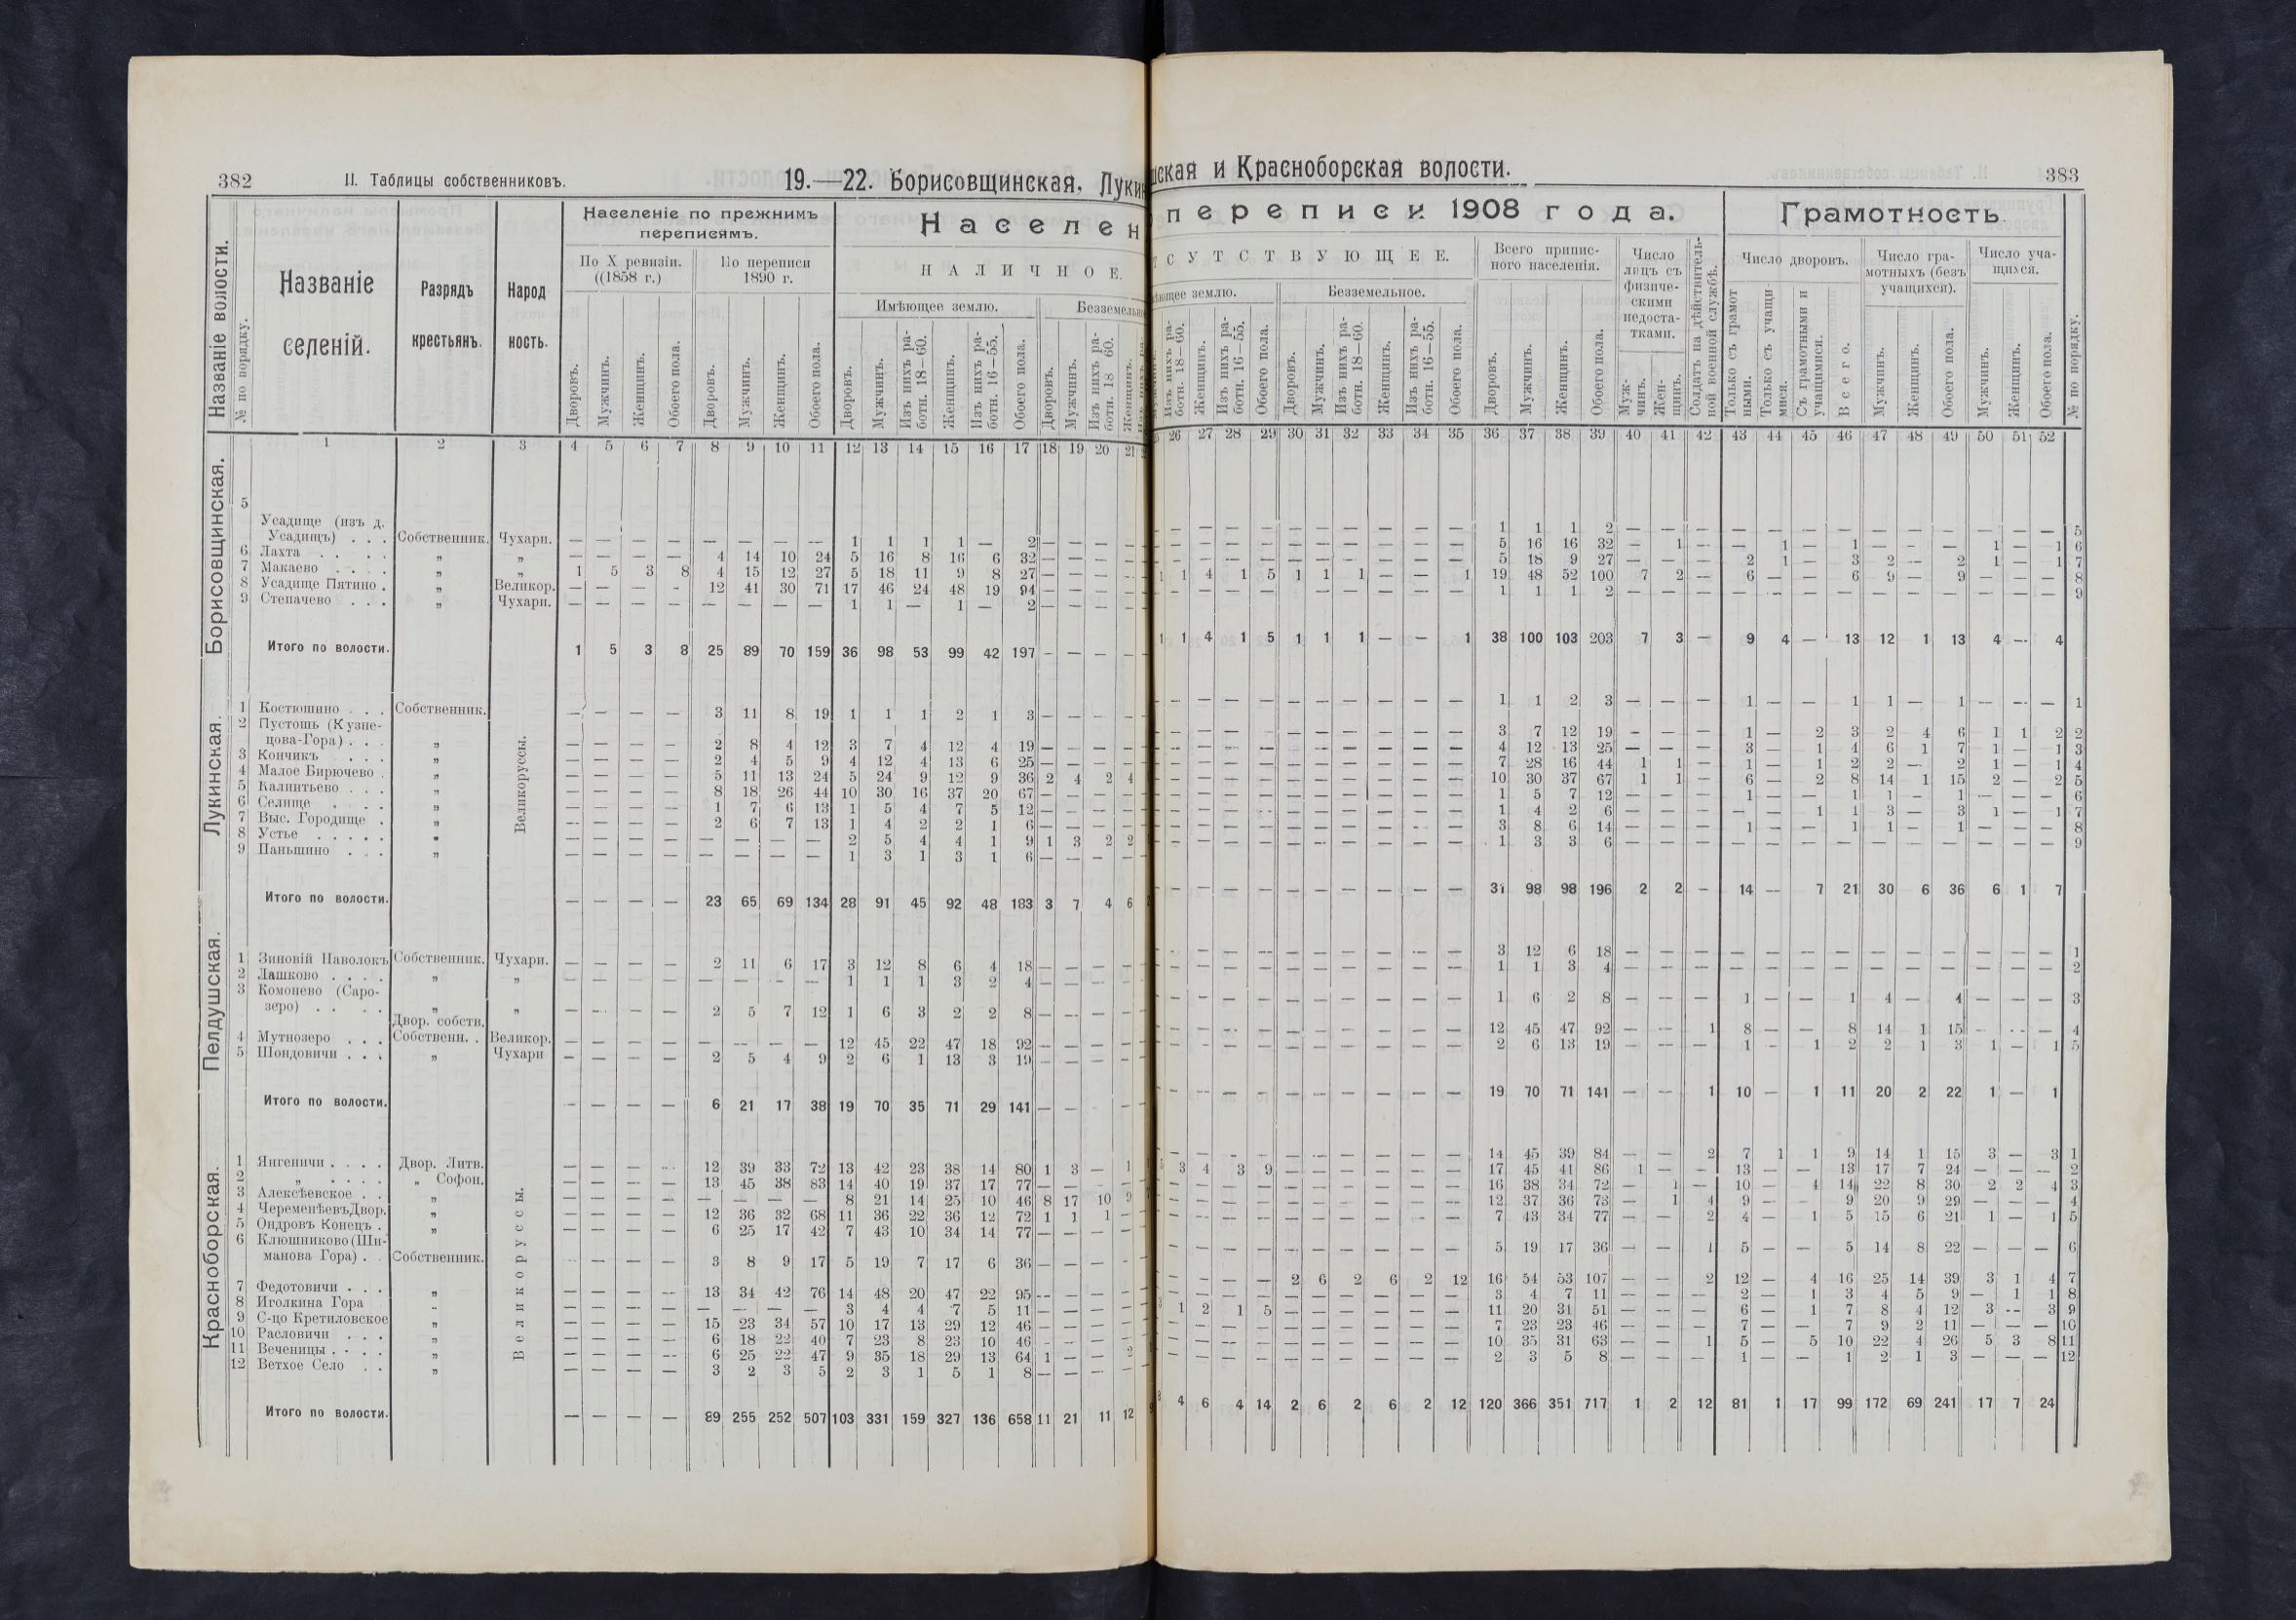 382 II. Таблицы собственниковъ. 19.—22. Борисовщинская, Лукин
Название волости.
№ по порядку.
Названіе селеній.
Разрядъ крестьянъ.
Народ ность.
Населеніе по прежнимъ переписямъ.
По X ревизіи. ((1858 г.)
По переписи 1890 г.
Населен
НАЛИЧНОЕ.
Имѣющее землю.
Дворовъ. Мужчинъ. Женщинъ. Обоего пола. Дворовъ. Мужчинъ. Женщинъ. Обоего пола. Дворовъ. Мужчинъ. Изъ нихъ работн. 18—60. Женщинъ. Изъ нихъ работн. 16—55. Обоего пола. Дворовъ. Мужчинъ. Изъ нихъ работн. 18 60. Женщинъ.
1 2 3 4 5 6 7 8 9 10 11 12 13 14 15 16 17 18 19 20 21
Борисовщинская.
5 Усадище (изъ д.
Усадищъ) . . . Собственник. Чухари. — — — — — — — — 1 1 1 1 — 2 — — — —
6 Лахта . . . . „ „ — — — — 4 14 10 24 5 16 8 16 6 32 — — — —
7 Макаево . . . . „ „ 1 5 3 8 4 15 12 27 5 18 11 9 8 27 — — — —
8 Усадище Пятино . „ Великор. — — — - 12 41 30 71 17 46 24 48 19 94 — — — —
9 Степачево . . . „ Чухари. — — — — — — — — 1 1 — 1 — 2 — — — —
Итого по волости. 1 5 3 8 25 89 70 159 36 98 53 99 42 197 — — — —
Лукинская.
Великоруссы.
1 Костюшино . . . Собственник. — — — — 3 11 8 19 1 1 1 2 1 3 — — — —
2 Пустошь (Кузне-
цова-Гора) . . . „ — — — — 2 8 4 12 3 7 4 12 4 19 — — — —
3 Кончикъ . . . „ — — — — 2 4 5 9 4 12 4 13 6 25 — — — —
4 Малое Бирючево . „ — — — — 5 11 13 24 5 24 9 12 9 36 2 4 2 4
5 Калитьево . . . „ — — — — 8 18 26 44 10 30 16 37 20 67 — — — —
6 Селище . . . „ — — — — 1 7 6 13 1 5 4 7 5 12 — — — —
7 Выс. Городище . „ — — — — 2 6 7 13 1 4 2 2 1 6 — — — —
8 Устье . . . . . „ — — — — — — — — 2 5 4 4 1 9 1 3 2 2
9 Паньшино . . . „ — — — — — — — — 1 3 1 3 1 6 — — — —
Итого по волости. — — — — 23 65 69 134 28 91 45 92 48 183 3 7 4 6
Пелдушская.
1 Зиновій Наволокъ Собственник. Чухари. — — — — 2 11 6 17 3 12 8 6 4 18 — — — —
2 Лашково . . . . „ „ — — — — — — — — 1 1 1 3 2 4 — — — —
3 Комонево (Саро-
зеро) . . . . „ „ — — — — 2 5 7 12 1 6 3 2 2 8 — — — —
Двор. собств.
4 Мутнозеро . . . Собственн. . Великор. — — — — 12 45 22 47 18 92 — — — —
5 Шондовичи . . . „ Чухари — — — — 2 5 4 9 2 6 1 13 3 19 — — — —
Итого по волости. — — — — 6 21 17 38 19 70 35 71 29 141 — — — —
Красноборская.
Великоруссы.
1 Янгеничи . . . . Двор. Литв. — — — — 12 39 33 72 13 42 23 38 14 80 1 3 — 1
2 „ . . . . „ Софон. — — — — 13 45 38 83 14 40 19 37 17 77 — — — —
3 Алексѣевское . . „ — — — — — — — — 8 21 14 25 10 46 8 17 10 9
4 ЧеременѣевъДвор. „ — — — — 12 36 32 68 11 36 22 36 12 72 1 1 1 —
5 Ондровъ Конецъ . „ — — — — 6 25 17 42 7 43 10 34 14 77 — — — —
6 Клюшниково(Ши-
манова Гора) . . Собственник. — — — — 3 8 9 17 5 19 7 17 6 36 — — — -
7 Федотовичи . . . „ — — — — 13 34 42 76 14 48 20 47 22 95 — — — —
8 Иголкина Гора „ — — — — — — — — 3 4 4 7 5 11 — — — —
9 С-цо Кретиловское „ — — — — 15 23 34 57 10 17 13 29 12 46 — — — —
10 Расловичи . . . „ — — — — 6 18 22 40 7 23 8 23 10 46 — — — —
11 Веченицы . . . . „ — — — — 6 25 22 47 9 35 18 29 13 64 1 — — 2
12 Ветхое Село . . „ — — — — 3 2 3 5 2 3 1 5 1 8 — — — —
Итого по волости. — — — — 89 255 252 507 103 331 159 327 136 658 11 21 11 12
ская и Красноборская волости. 383
переписи 1908 года.
Грамотность
СУТСТВУЮЩЕЕ.
Всего приписного населенія.
Число лицъ съ физическими недостатками.
Солдатъ на дѣйствительной военной службѣ.
Число дворовъ.
Число грамотныхъ (безъ учащихся).
Число учащихся.
ющее землю.
Безземельное.
Изъ нихъ работн. 18—60. Женщинъ. Изъ нихъ работн. 16—55. Обоего пола. Дворовъ. Мужчинъ. Изъ нихъ работн. 18—60. Женщинъ. Изъ нихъ работн. 16—55. Обоего пола. Дворовъ. Мужчинъ. Женщинъ. Обоего пола. Мужчинъ. Женщинъ. Только съ грамотными. Только съ учащимися. Съ грамотными и учащимися. Всего. Мужчинъ. Женщинъ. Обоего пола. Мужчинъ. Женщинъ. Обоего пола. № по порядку.
26 27 28 29 30 31 32 33 34 35 36 37 38 39 40 41 42 43 44 45 46 47 48 49 50 51 52
— — — — — — — — — — — 1 1 1 2 — — — — — — — — — — — — — 5
— — — — — — — — — — — 5 16 16 32 — 1 — — 1 — 1 — — — 1 — 1 6
— — — — — — — — — — — 5 18 9 27 — — — 2 1 — 3 2 — 2 1 — 1 7
1 1 4 1 5 1 1 1 — — 1 19 48 52 100 7 2 — 6 — — 6 9 — 9 — — — 8
— — — — — — — — — — — 1 1 1 2 — — — — — — — — — — — — — 9
1 1 4 1 5 1 1 1 — — 1 38 100 103 203 7 3 — 9 4 — 13 12 1 13 4 — 4
— — — — — — — — — — — 1 1 2 3 — — — 1 — — 1 1 — 1 — — — 1
— — — — — — — — — — — 3 7 12 19 — — — 1 — 2 3 2 4 6 1 1 2 2
— — — — — — — — — — — 4 12 13 25 — — — 3 — 1 4 6 1 7 1 — 1 3
— — — — — — — — — — — 7 28 16 44 1 1 — 1 — 1 2 2 — 2 1 — 1 4
— — — — — — — — — — — 10 30 37 67 1 1 — 6 — 2 8 14 1 15 2 — 2 5
— — — — — — — — — — — 1 5 7 12 — — — 1 — — 1 1 — 1 — — — 6
— — — — — — — — — — — 1 4 2 6 — — — — — 1 1 3 — 3 1 — 1 7
— — — — — — — — — — — 3 8 6 14 — — — 1 — — 1 1 — 1 — — — 8
— — — — — — — — — — — 1 3 3 6 — — — — — — — — — — — — — 9
— — — — — — — — — — — 31 98 98 196 2 2 — 14 — 7 21 30 6 36 6 1 7
— — — — — — — — — — — 3 12 6 18 — — — — — — — — — — — — — 1
— — — — — — — — — — — 1 1 3 4 — — — — — — — — — — — — — 2
— — — — — — — — — — — 1 6 2 8 — — — 1 — — 1 4 — 4 — — — 3
— — — — — — — — — — — 12 45 47 92 — — 1 8 — — 8 14 1 15 — — — 4
— — — — — — — — — — — 2 6 13 19 — — — 1 — 1 2 2 1 3 1 — 1 5
— — — — — — — — — — — 19 70 71 141 — — 1 10 — 1 11 20 2 22 1 — 1
— — — — — — — — — — 14 45 39 84 — — 2 7 1 1 9 14 1 15 3 — 3 1
3 4 3 9 — — — — — — 17 45 41 86 1 — — 13 — — 13 17 7 24 — — — 2
— — — — — — — — — — 16 38 34 72 — 1 — 10 — 4 14 22 8 30 2 2 4 3
— — — — — — — — — — 12 37 36 73 — 1 4 9 — — 9 20 9 29 — — — 4
— — — — — — — — — — 7 43 34 77 — — 2 4 — 1 5 15 6 21 1 — 1 5
— — — — — — — — — — 5 19 17 36 — — 1 5 — — 5 14 8 22 — — — 6
— — — — 2 6 2 6 2 12 16 54 53 107 — — 2 12 — 4 16 25 14 39 3 1 4 7
— — — — — — — — — — 3 4 7 11 — — — 2 — 1 3 4 5 9 — 1 1 8
1 2 1 5 — — — — — — 11 20 31 51 — — — 6 — 1 7 8 4 12 3 — 3 9
— — — — — — — — — — 7 23 23 46 — — — 7 — — 7 9 2 11 — — — 10
— — — — — — — — — — 10 35 31 63 — — 1 5 — 5 10 22 4 26 5 3 8 11
— — — — — — — — — — 2 3 5 8 — — — 1 — — 1 2 1 3 — — — 12
4 6 4 14 2 6 2 6 2 12 120 366 351 717 1 2 12 81 1 17 99 172 69 241 17 7 24